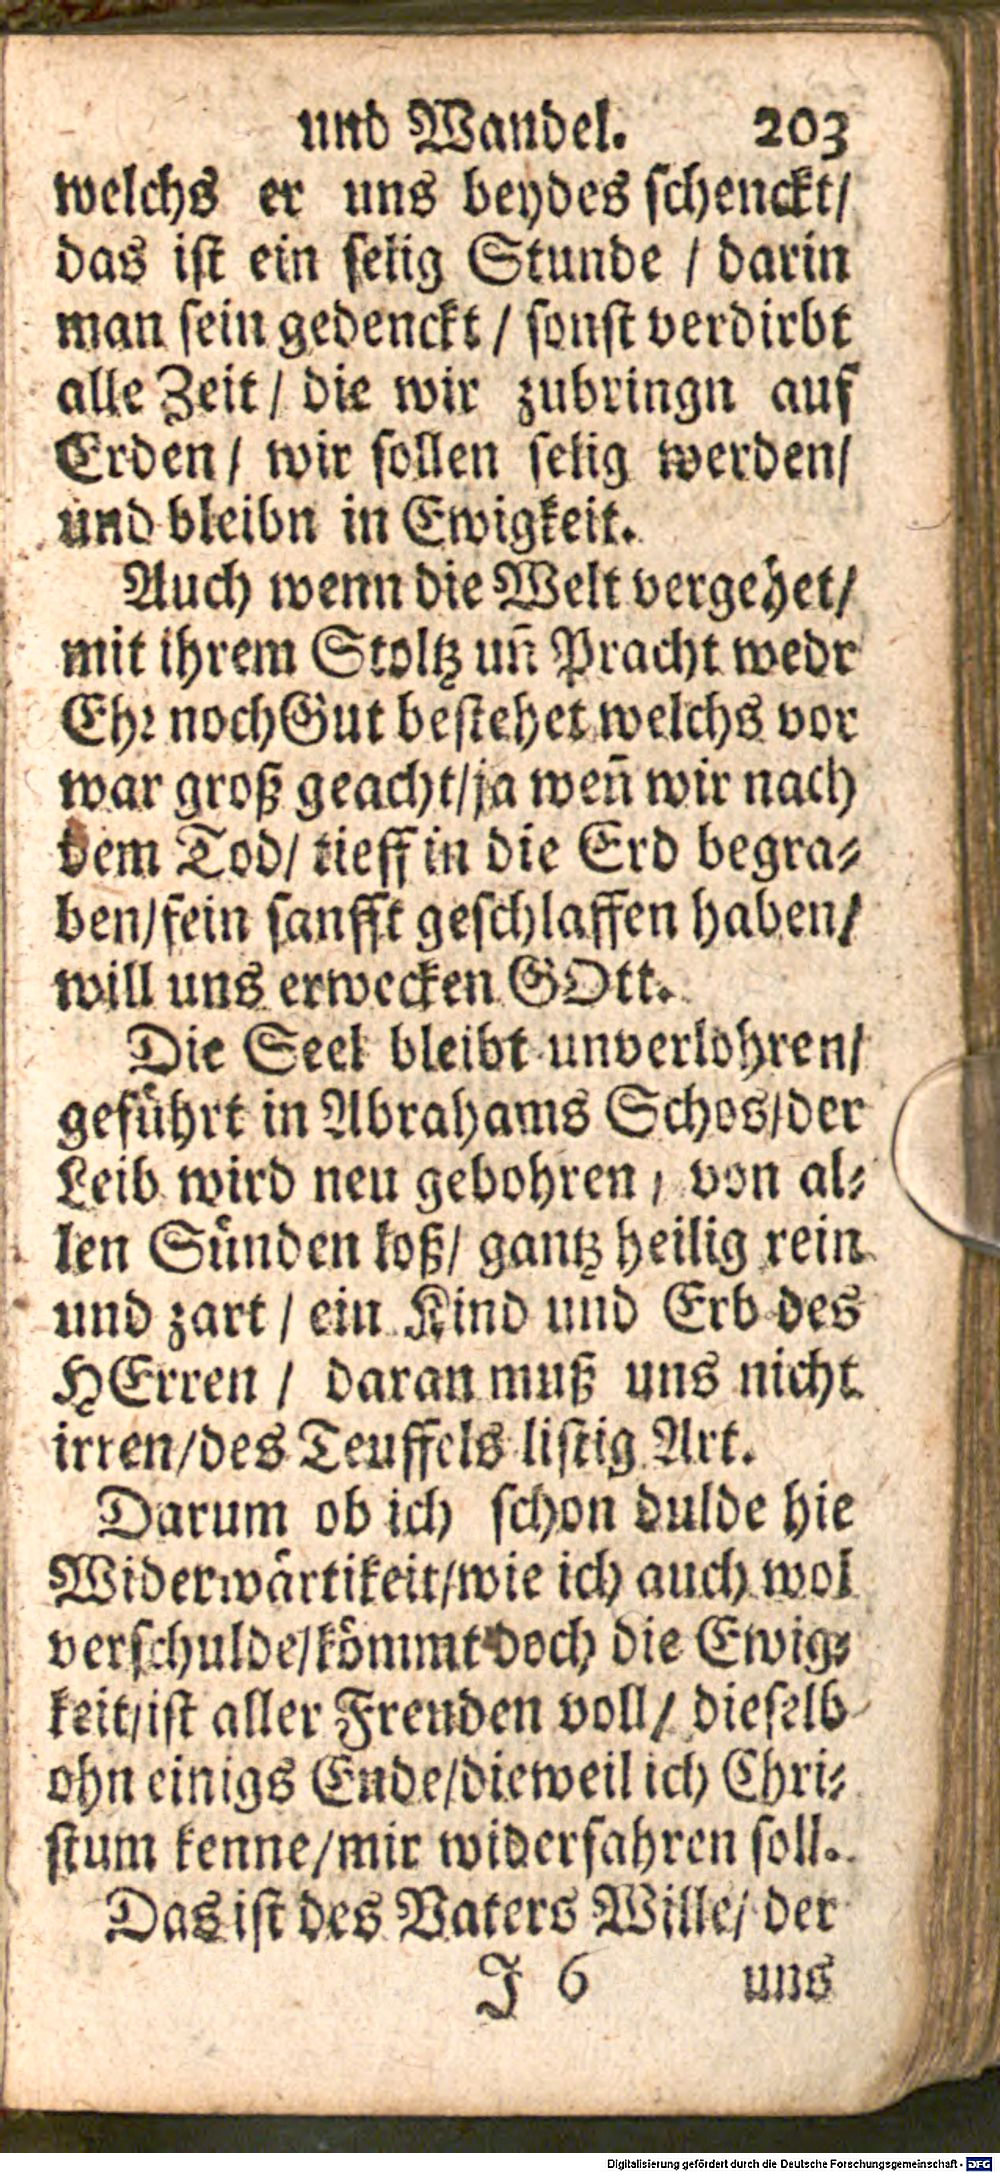 und Wandel. 203
welchs er uns beydes schenckt/
das ist ein selig Stunde / darin
man sein gedenckt / sonst verdirbt
alle Zeit / die wir zubringn auf
Erden / wir sollen selig werden/
und bleibn in Ewigkeit.
Auch wenn die Welt vergehet/
mit ihrem Stoltz uñ Pracht wedr
Ehr noch Gut bestehet welchs vor
war groß geacht/ja weñ wir nach
dem Tod/ tieff in die Erd begra-
ben/fein sanfft geschlaffen haben/
will uns erwecken GOtt.
Die Seel bleibt unverlohren/
geführt in Abrahams Schos/der
Leib wird neu gebohren / von al-
len Sünden loß/ gantz heilig rein
und zart / ein Kind und Erb des
HErren / daran muß uns nicht
irren/des Teuffels listig Art.
Darum ob ich schon dulde hie
Widerwärtikeit/wie ich auch wol
verschulde/kömmt doch die Ewig-
keit/ist aller Freuden voll/ dieselb
ohn einigs Ende/dieweil ich Chri-
stum kenne/mir widerfahren soll.
Das ist des Vaters Wille/ der
J 6 uns
Digitalisierung gefördert durch die Deutsche Forschungsgemeinschaft - DFG